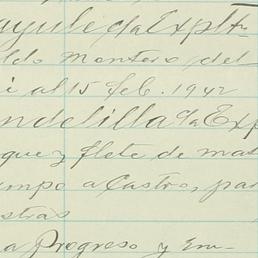 ayule da Expl
ldo Montero, del
i al 15 Feb. 1942
ndelilla da Exp
que y flete de mat
empo a Castro, par
stras
a Progreso y Em-